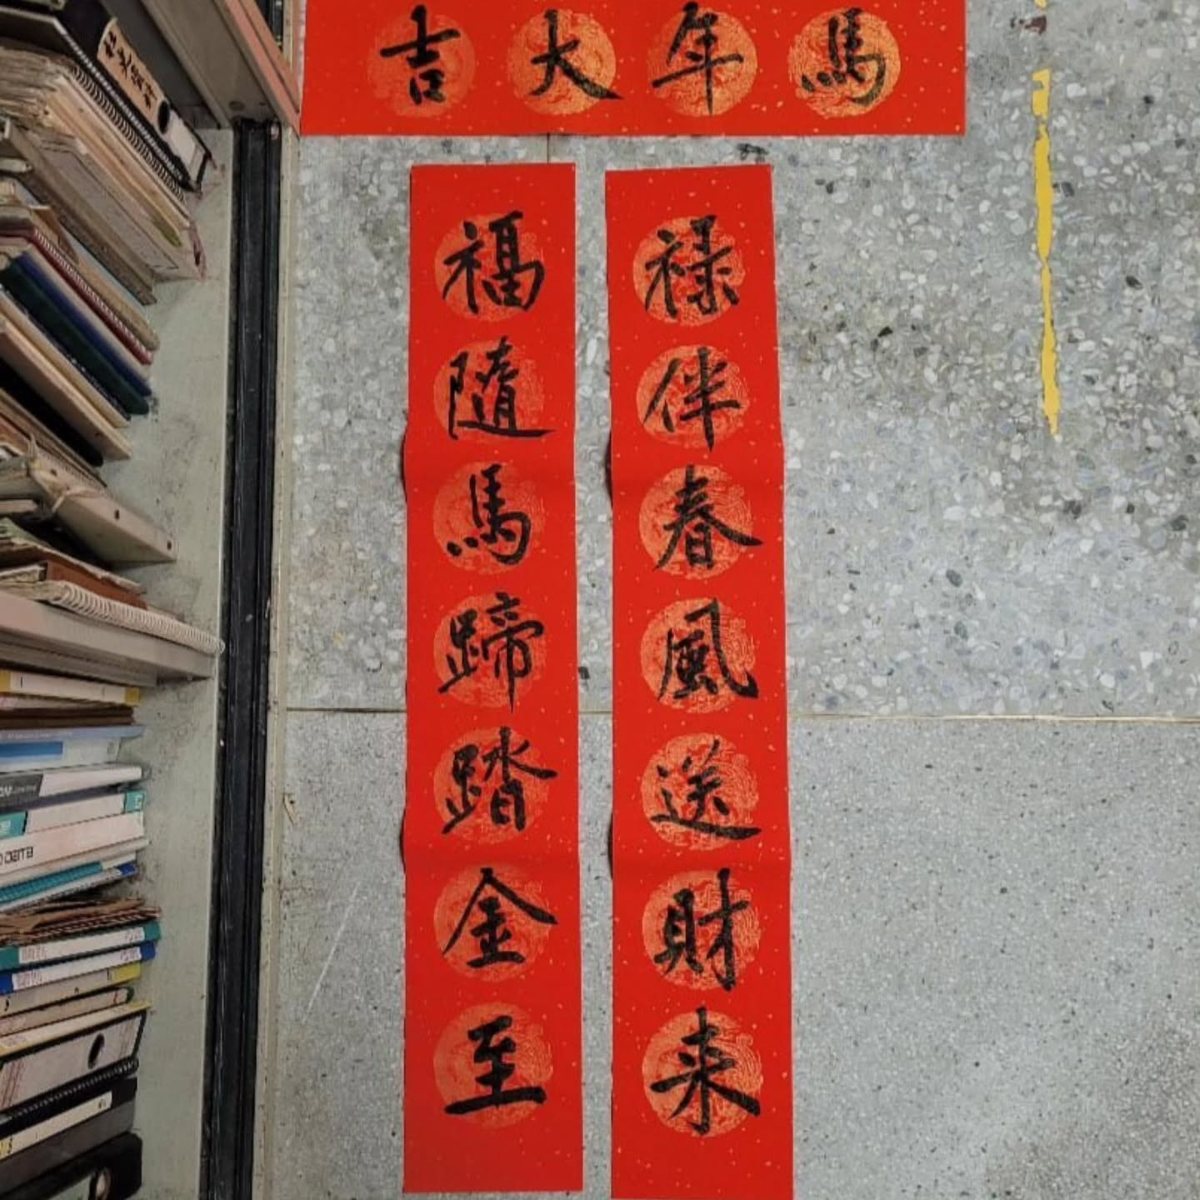 馬年大吉
禄伴春風送財来
福隨馬蹄踏金至